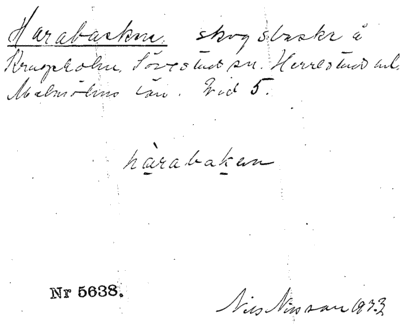 Harabacken, skogsbacke å
Krageholm, Sövestads sn. Herrestads hd.
Malmöhus län. Vid 5.
hàrabaken
Nr 5638.
Nils Nilsson 1933